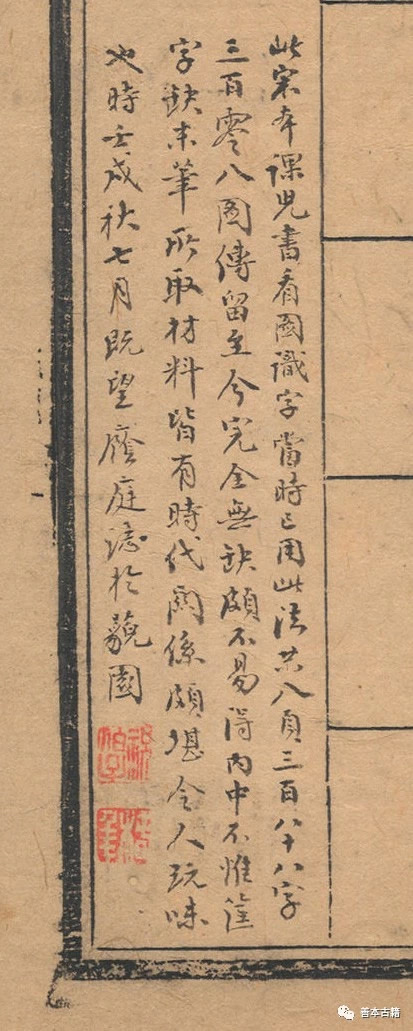 此宋本課兒書看圖識字當時已用此法共八頁三百八十八字
三百零八圖傳留至今完全無缺頗不易得内中不惟筐
字缺末筆所取材料皆有時代關係頗堪令人玩味
也時壬戌秋七月既望庭誌於藐園
善本古籍